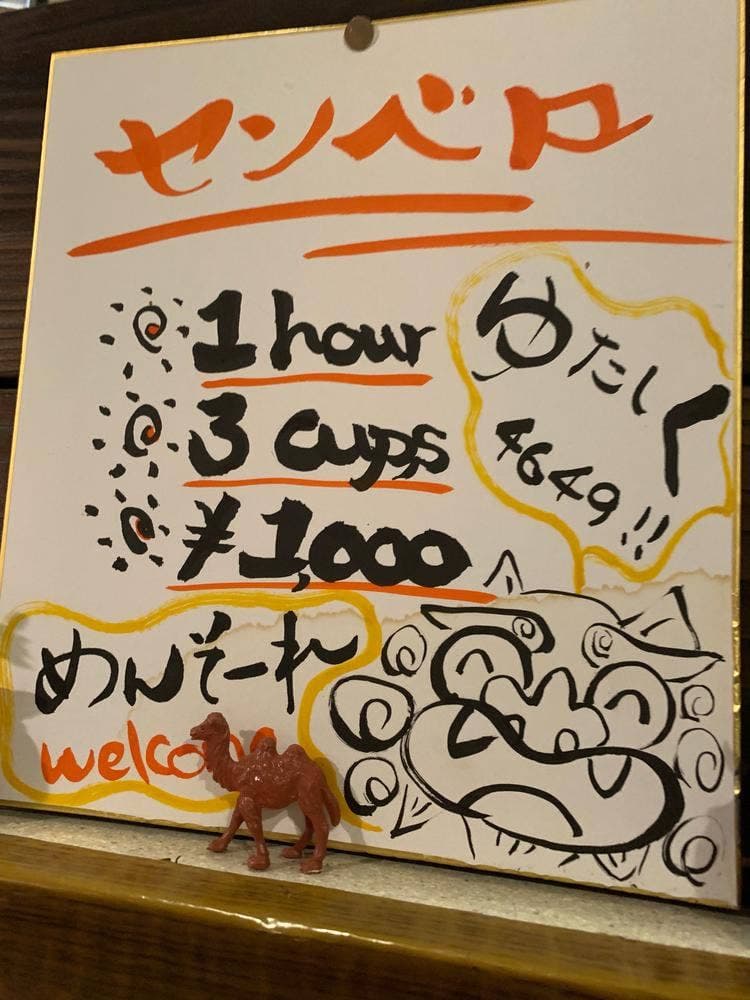 センベロ
1 hour
3 cups
¥1,000
ゆたしく
4649!!
めんそーれ
welcome